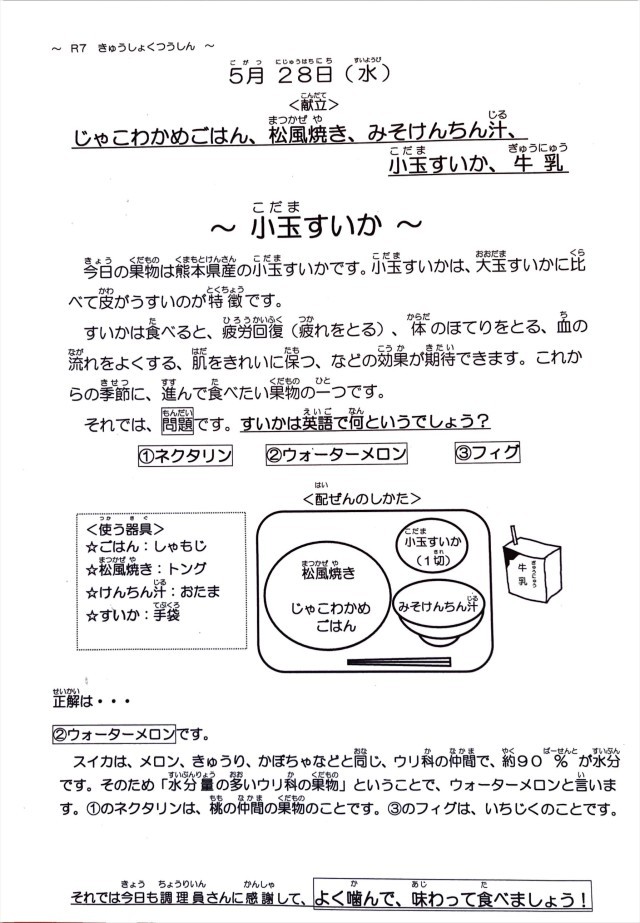 ～ R7 きゅうしょくつうしん ～
5月 28日（水）
＜献立＞
じゃこわかめごはん、松風焼き、みそけんちん汁、
小玉すいか、牛乳
～ 小玉すいか ～
今日の果物は熊本県産の小玉すいかです。小玉すいかは、大玉すいかに比
べて皮がうすいのが特徴です。
すいかは食べると、疲労回復（疲れをとる）、体のほてりをとる、血の
流れをよくする、肌をきれいに保つ、などの効果が期待できます。これか
らの季節に、進んで食べたい果物の一つです。
それでは、問題です。すいかは英語で何というでしょう？
①ネクタリン ②ウォーターメロン ③フィグ
＜配ぜんのしかた＞
＜使う器具＞
☆ごはん：しゃもじ
☆松風焼き：トング
☆けんちん汁：おたま
☆すいか：手袋
松風焼き
じゃこわかめ
ごはん
小玉すいか
（1切）
みそけんちん汁
牛乳
正解は・・・
②ウォーターメロンです。
スイカは、メロン、きゅうり、かぼちゃなどと同じ、ウリ科の仲間で、約90％が水分
です。そのため「水分量の多いウリ科の果物」ということで、ウォーターメロンと言いま
す。①のネクタリンは、桃の仲間の果物のことです。③のフィグは、いちじくのことです。
それでは今日も調理員さんに感謝して、よく噛んで、味わって食べましょう！